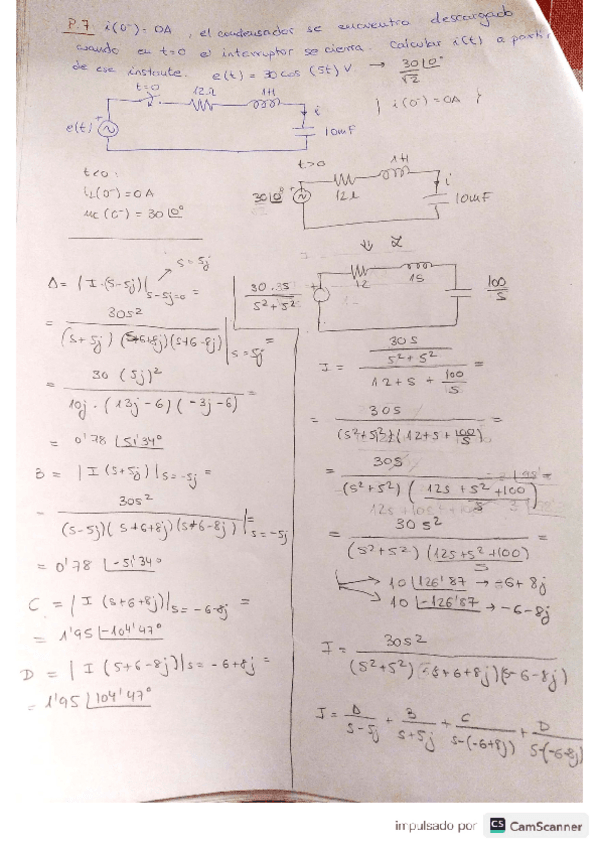 P.7 i(0⁻)= 0A , el condensador se encuentra descargado
cuando en t=0 el interruptor se cierra. Calcular i(t) a partir
de ese instante. e(t) = 30 cos (5t) V → 30∠0° / √2
t=0 12Ω 1H
i
{ i(0⁻) = 0A }
e(t) 10mF
t<0:
iL(0⁻) = 0A
uc(0⁻) = 30∠0°
t>0 1H
30∠0° 12Ω i 10mF
⇓ L
12 1S
30·s / s²+5² 100/s
s=5j
A = | I·(s-5j) | s-5j=0 =
= 30s² / (s+5j)(s+6+8j)(s+6-8j) | s=5j =
= 30 (5j)² / 10j·(13j-6)(-3j-6) =
= 0'78 ∠51'34°
B = | I (s+5j) | s=-5j =
= 30s² / (s-5j)(s+6+8j)(s+6-8j) | s=-5j =
= 0'78 ∠-51'34°
C = | I (s+6+8j) | s=-6-8j =
= 1'95 ∠-104'47°
D = | I (s+6-8j) | s=-6+8j =
= 1'95 ∠104'47°
I = 30s / s²+5² / 12+s+100/s =
= 30s / (s²+5²)(12+s+100/s) =
= 30s / (s²+5²)(12s+s²+100 / s) =
= 30s² / (s²+5²)(12s+s²+100) =
→ 10 ∠126'87 → -6+8j
→ 10 ∠-126'87 → -6-8j
I = 30s² / (s²+5²)(s+6+8j)(s-6-8j)
I = A / s-5j + B / s+5j + C / s-(-6+8j) + D / s-(-6-8j)
impulsado por CS CamScanner